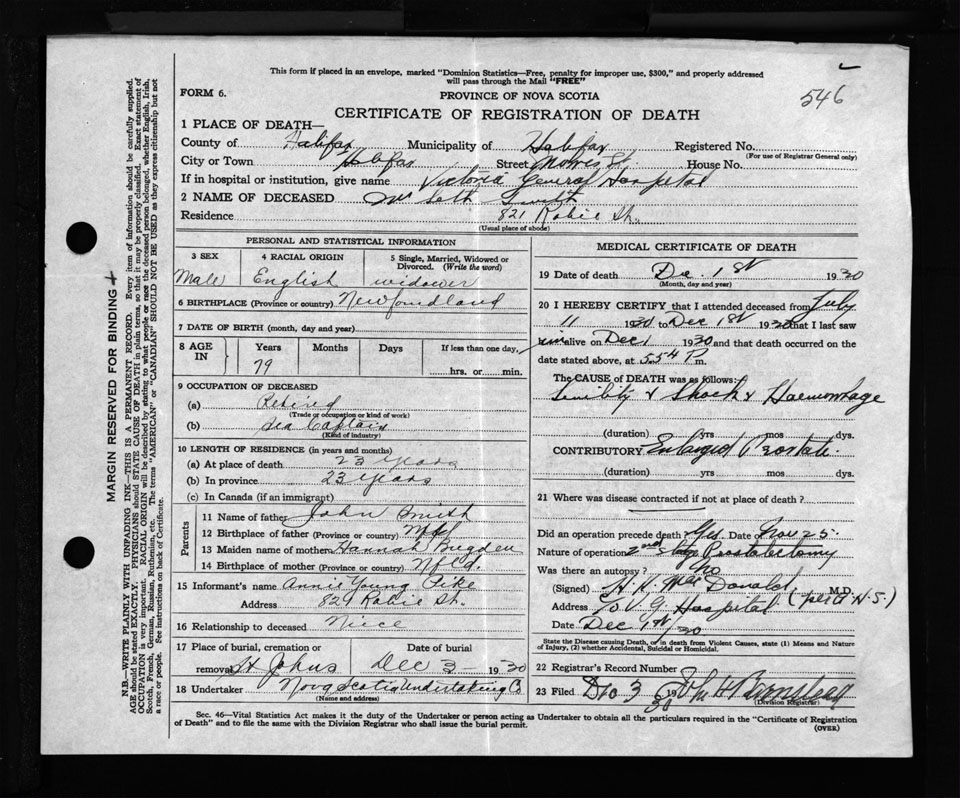 This form if placed in an envelope, marked "Dominion Statistics—Free, penalty for improper use, $300," and properly addressed
will pass through the Mail "FREE"
546
FORM 6.
PROVINCE OF NOVA SCOTIA
CERTIFICATE OF REGISTRATION OF DEATH
1 PLACE OF DEATH—
County of Halifax Municipality of Halifax Registered No.
(For use of Registrar General only)
City or Town Halifax Street Morris St. House No.
If in hospital or institution, give name Victoria General Hospital
2 NAME OF DECEASED Mr Seth Smith
Residence 821 Robie St.
(Usual place of abode)
PERSONAL AND STATISTICAL INFORMATION
3 SEX 4 RACIAL ORIGIN 5 Single, Married, Widowed or Divorced. (Write the word)
Male English widower
6 BIRTHPLACE (Province or country) Newfoundland
7 DATE OF BIRTH (month, day and year)
8 AGE IN Years Months Days If less than one day,
79 hrs. or min.
9 OCCUPATION OF DECEASED
(a) Retired
(Trade or occupation or kind of work)
(b) Sea Captain
(Kind of industry)
10 LENGTH OF RESIDENCE (in years and months)
(a) At place of death 23 years
(b) In province 23 years
(c) In Canada (if an immigrant)
Parents
11 Name of father John Smith
12 Birthplace of father (Province or country) Nfld
13 Maiden name of mother Hannah Bugden
14 Birthplace of mother (Province or country) Nfld.
15 Informant's name Annie Young Pike
Address 821 Robie St.
16 Relationship to deceased Niece
17 Place of burial, cremation or removal St Johns Date of burial Dec 3 1930
18 Undertaker Nova Scotia Undertaking Co
(Name and address)
MEDICAL CERTIFICATE OF DEATH
19 Date of death Dec. 1st 1930
(Month, day and year)
20 I HEREBY CERTIFY that I attended deceased from July
11 1930 to Dec 1st 1930 that I last saw
him alive on Dec 1 1930 and that death occurred on the
date stated above, at 5.54 P m.
The CAUSE OF DEATH was as follows:
Senility & Shock & Haemorrhage
(duration) yrs mos dys.
CONTRIBUTORY Enlarged Prostate
(duration) yrs. mos dys.
21 Where was disease contracted if not at place of death?
Did an operation precede death? Yes. Date Nov 25.
Nature of operation 2nd stage Prostatectomy
Was there an autopsy? no
(Signed) H. K. MacDonald M.D.
Address To V. G. Hospital
Date Dec 1st/30
State the Disease causing Death, or in death from Violent Causes, state (1) Means and Nature
of Injury, (2) whether Accidental, Suicidal or Homicidal.
22 Registrar's Record Number
23 Filed Dec 3 1930
(Division Registrar)
Sec. 46—Vital Statistics Act makes it the duty of the Undertaker or person acting as Undertaker to obtain all the particulars required in the "Certificate of Registration
of Death" and to file the same with the Division Registrar who shall issue the burial permit.
(OVER)
MARGIN RESERVED FOR BINDING
N.B.—WRITE PLAINLY WITH UNFADING INK—THIS IS A PERMANENT RECORD. Every item of information should be carefully supplied.
AGE should be stated EXACTLY. PHYSICIANS should STATE CAUSE OF DEATH in plain terms, so that it may be properly classified. Exact statement of
OCCUPATION is very important. RACIAL ORIGIN will be described by stating to what people or race the deceased person belonged, whether English, Irish,
Scotch, French, German, Russian, Ruthenian, etc. The terms "AMERICAN" or "CANADIAN" SHOULD NOT BE USED as they express citizenship but not
a race or people. See instructions on back of Certificate.